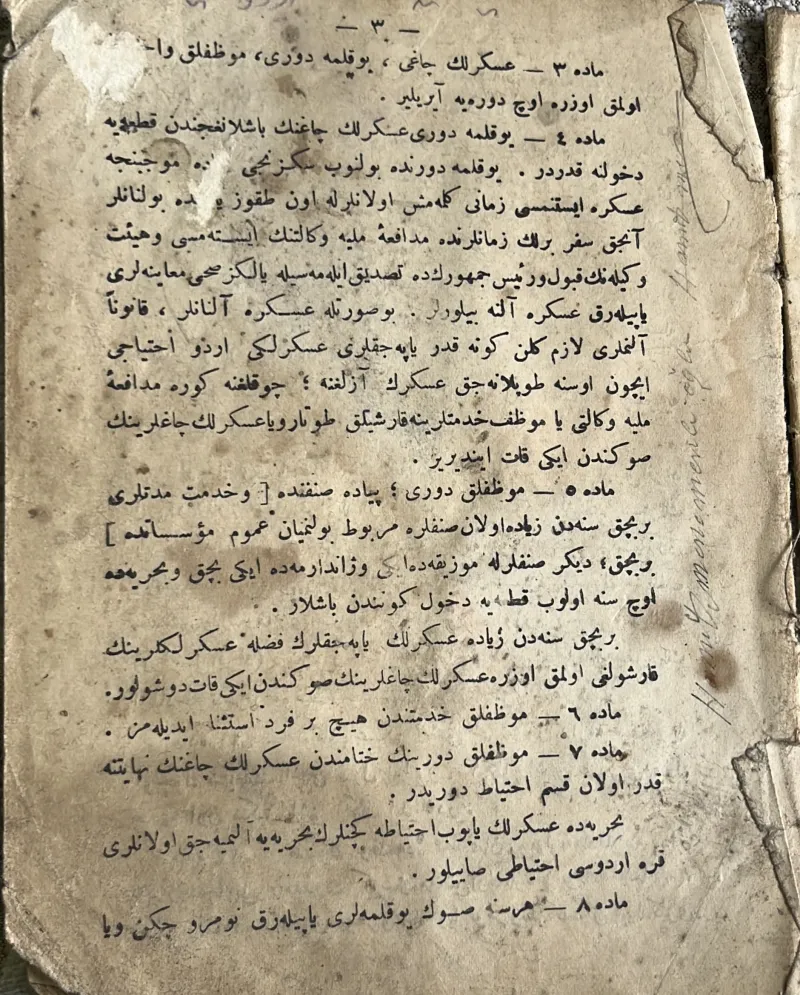 — ٣ —
ماده ٣ — عسكرلك چاغى ، يوقلمه دورى، موظفلق
اولمق اوزره اوچ دوره‌يه آيريلير .
ماده ٤ — يوقلمه دورى عسكرلك چاغنك باشلانغجندن قطعه‌يه
دخولنه قدردر . يوقلمه دورنده بولنوب سكزنجى ماده موجبنجه
عسكره ايستنمسى زمانى كله‌مش اولانلرله اون طقوز ده بولنانلر
آنجق سفر برلك زمانلرنده مدافعهٔ مليه وكالتنك ايسته‌مسى وهيئت
وكيله‌نك قبول ورئيس جمهورك ده تصديق ايله‌مه‌سيله يالكز صحى معاينه‌لرى
ياپيله‌رق عسكره آلنه بيلورلر . بوصورتله عسكره آلنانلر ، قانوناً
آلنملرى لازم كلن كونه قدر ياپه‌جقلرى عسكرلكى اردو احتياجى
ايچون اوسنه طوپلانه‌جق عسكرك آزلغنه ؛ چوقلغنه كوره مدافعهٔ
مليه وكالتى يا موظف خدمتلرينه قارشيلق طوتار ويا عسكرلك چاغلرينك
صوكندن ايكى قات اينديرير .
ماده ٥ — موظفلق دورى ؛ پياده صنفنده [ وخدمت مدتلرى
بربچق سنه‌دن زياده اولان صنفلره مربوط بولنميان عموم مؤسساتده ]
بربچق؛ ديكر صنفلرله موزيقه‌ده ايكى وژاندارمه‌ده ايكى بچق وبحريه‌ده
اوچ سنه اولوب قطعه‌يه دخول كونندن باشلار .
بربچق سنه‌دن زياده عسكرلك ياپه‌جقلرك فضله عسكرلكلرينك
قارشولغى اولمق اوزره عسكرلك چاغلرينك صوكندن ايكى قات دوشولور.
ماده ٦ — موظفلق خدمتندن هيچ بر فرد استثنا ايديله‌مز .
ماده ٧ — موظفلق دورينك ختامندن عسكرلك چاغنك نهايتنه
قدر اولان قسم احتياط دوريدر .
بحريه‌ده عسكرلك ياپوب احتياطه كچنلرك بحريه‌يه آلنميه‌جق اولانلرى
قره اردوسى احتياطى صاييلور .
ماده ٨ — هرسنه صوك يوقلمه‌لرى ياپيله‌رق نومرو چكن ويا